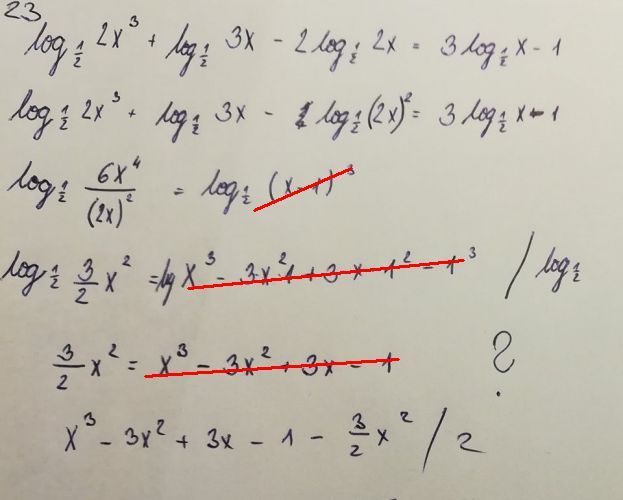 23
log_{1/2} 2x³ + log_{1/2} 3x - 2 log_{1/2} 2x = 3 log_{1/2} x - 1
log_{1/2} 2x³ + log_{1/2} 3x - log_{1/2} (2x)² = 3 log_{1/2} x - 1
log_{1/2} 6x⁴/(2x)² = log_{1/2} (x - 1)³
log_{1/2} 3/2 x² = log x³ - 3x²·1 + 3·x·1² - 1³ / log_{1/2}
3/2 x² = x³ - 3x² + 3x - 1 ?
x³ - 3x² + 3x - 1 - 3/2 x² / 2